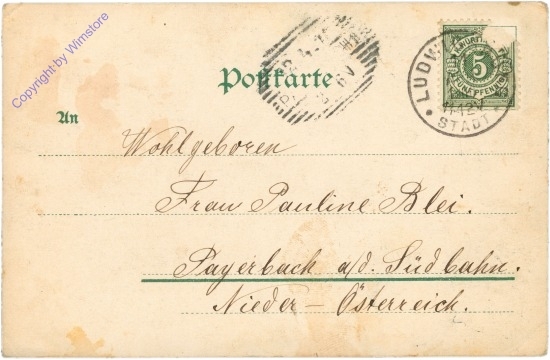 Copyright by Wimstore
Postkarte
5
FÜNF PFENNIG
LUDW
STADT
An
Wohlgeboren
Frau Pauline Blei.
Payerbach a/d. Südbahn.
Nieder-Österreich.